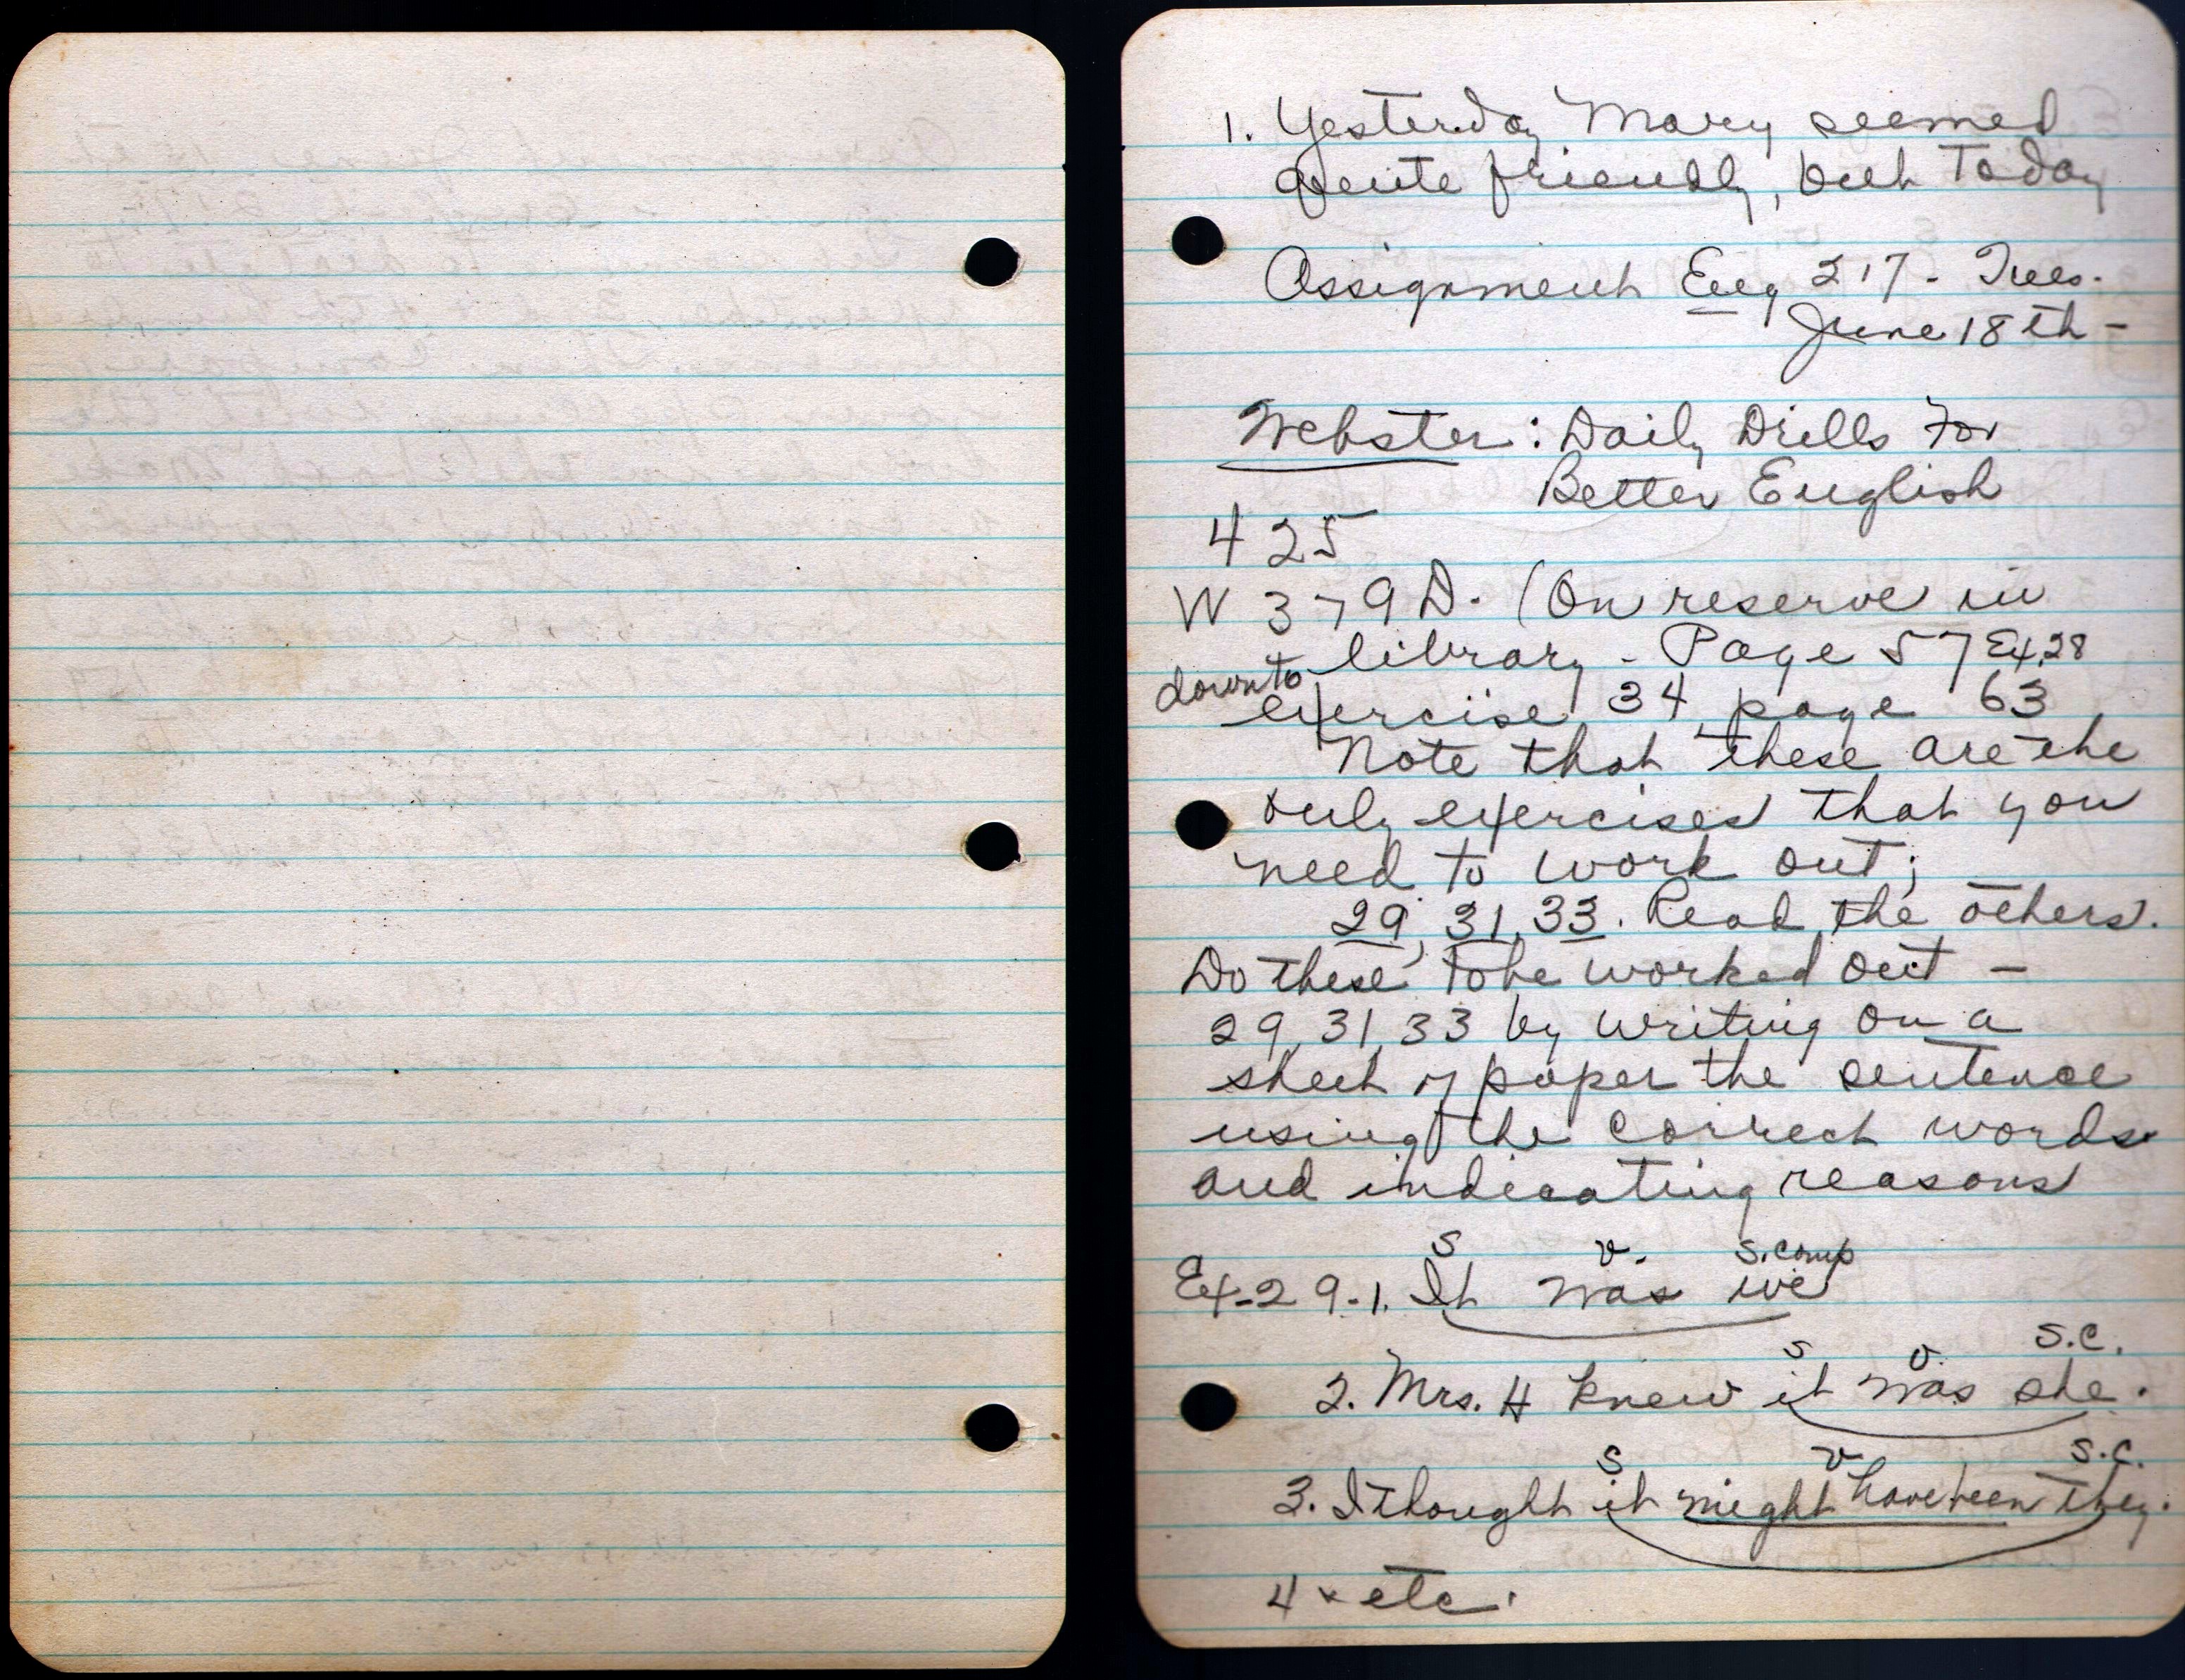 1. Yesterday Mary seemed
quite friendly, but Today
Assignment Eng 217 - Tues.
June 18th -
Webster: Daily Drills for
Better English
425
W 379D. (On reserve in
library - Page 57 Ex. 28
down to
exercise 34, page 63
Note that these are the
only exercises that you
need to work out;
29, 31, 33. Read the others.
Do these, to be worked out -
29, 31, 33 by writing on a
sheet of paper the sentence
using the correct words
and indicating reasons
S v. S. comp
Ex-29-1. It was we
S v. S.C.
2. Mrs. H knew it was she.
S v S.C.
3. I thought it might have been they.
4 x etc.